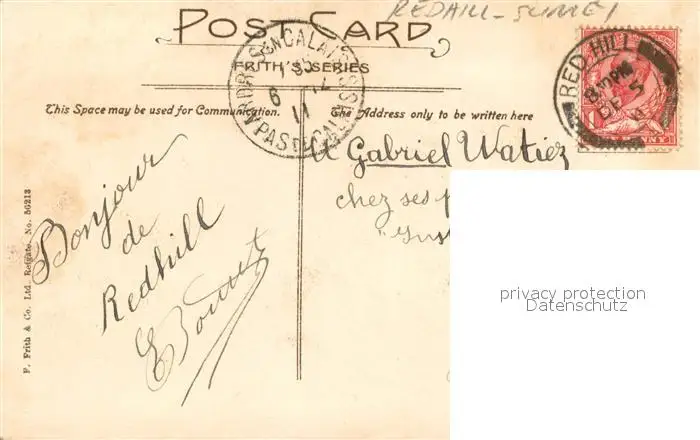 REDHILL - SURREY
POST CARD
FRITH'S SERIES
This Space may be used for Communication.
The Address only to be written here
RED HILL
8. PM
DE 5
11
6
12
11
PAS DE CALAIS
A Gabriel Watiez
chez ses
Bonjour
de
Redhill
F. Frith & Co. Ltd., Reigate. No. 56213
privacy protection
Datenschutz